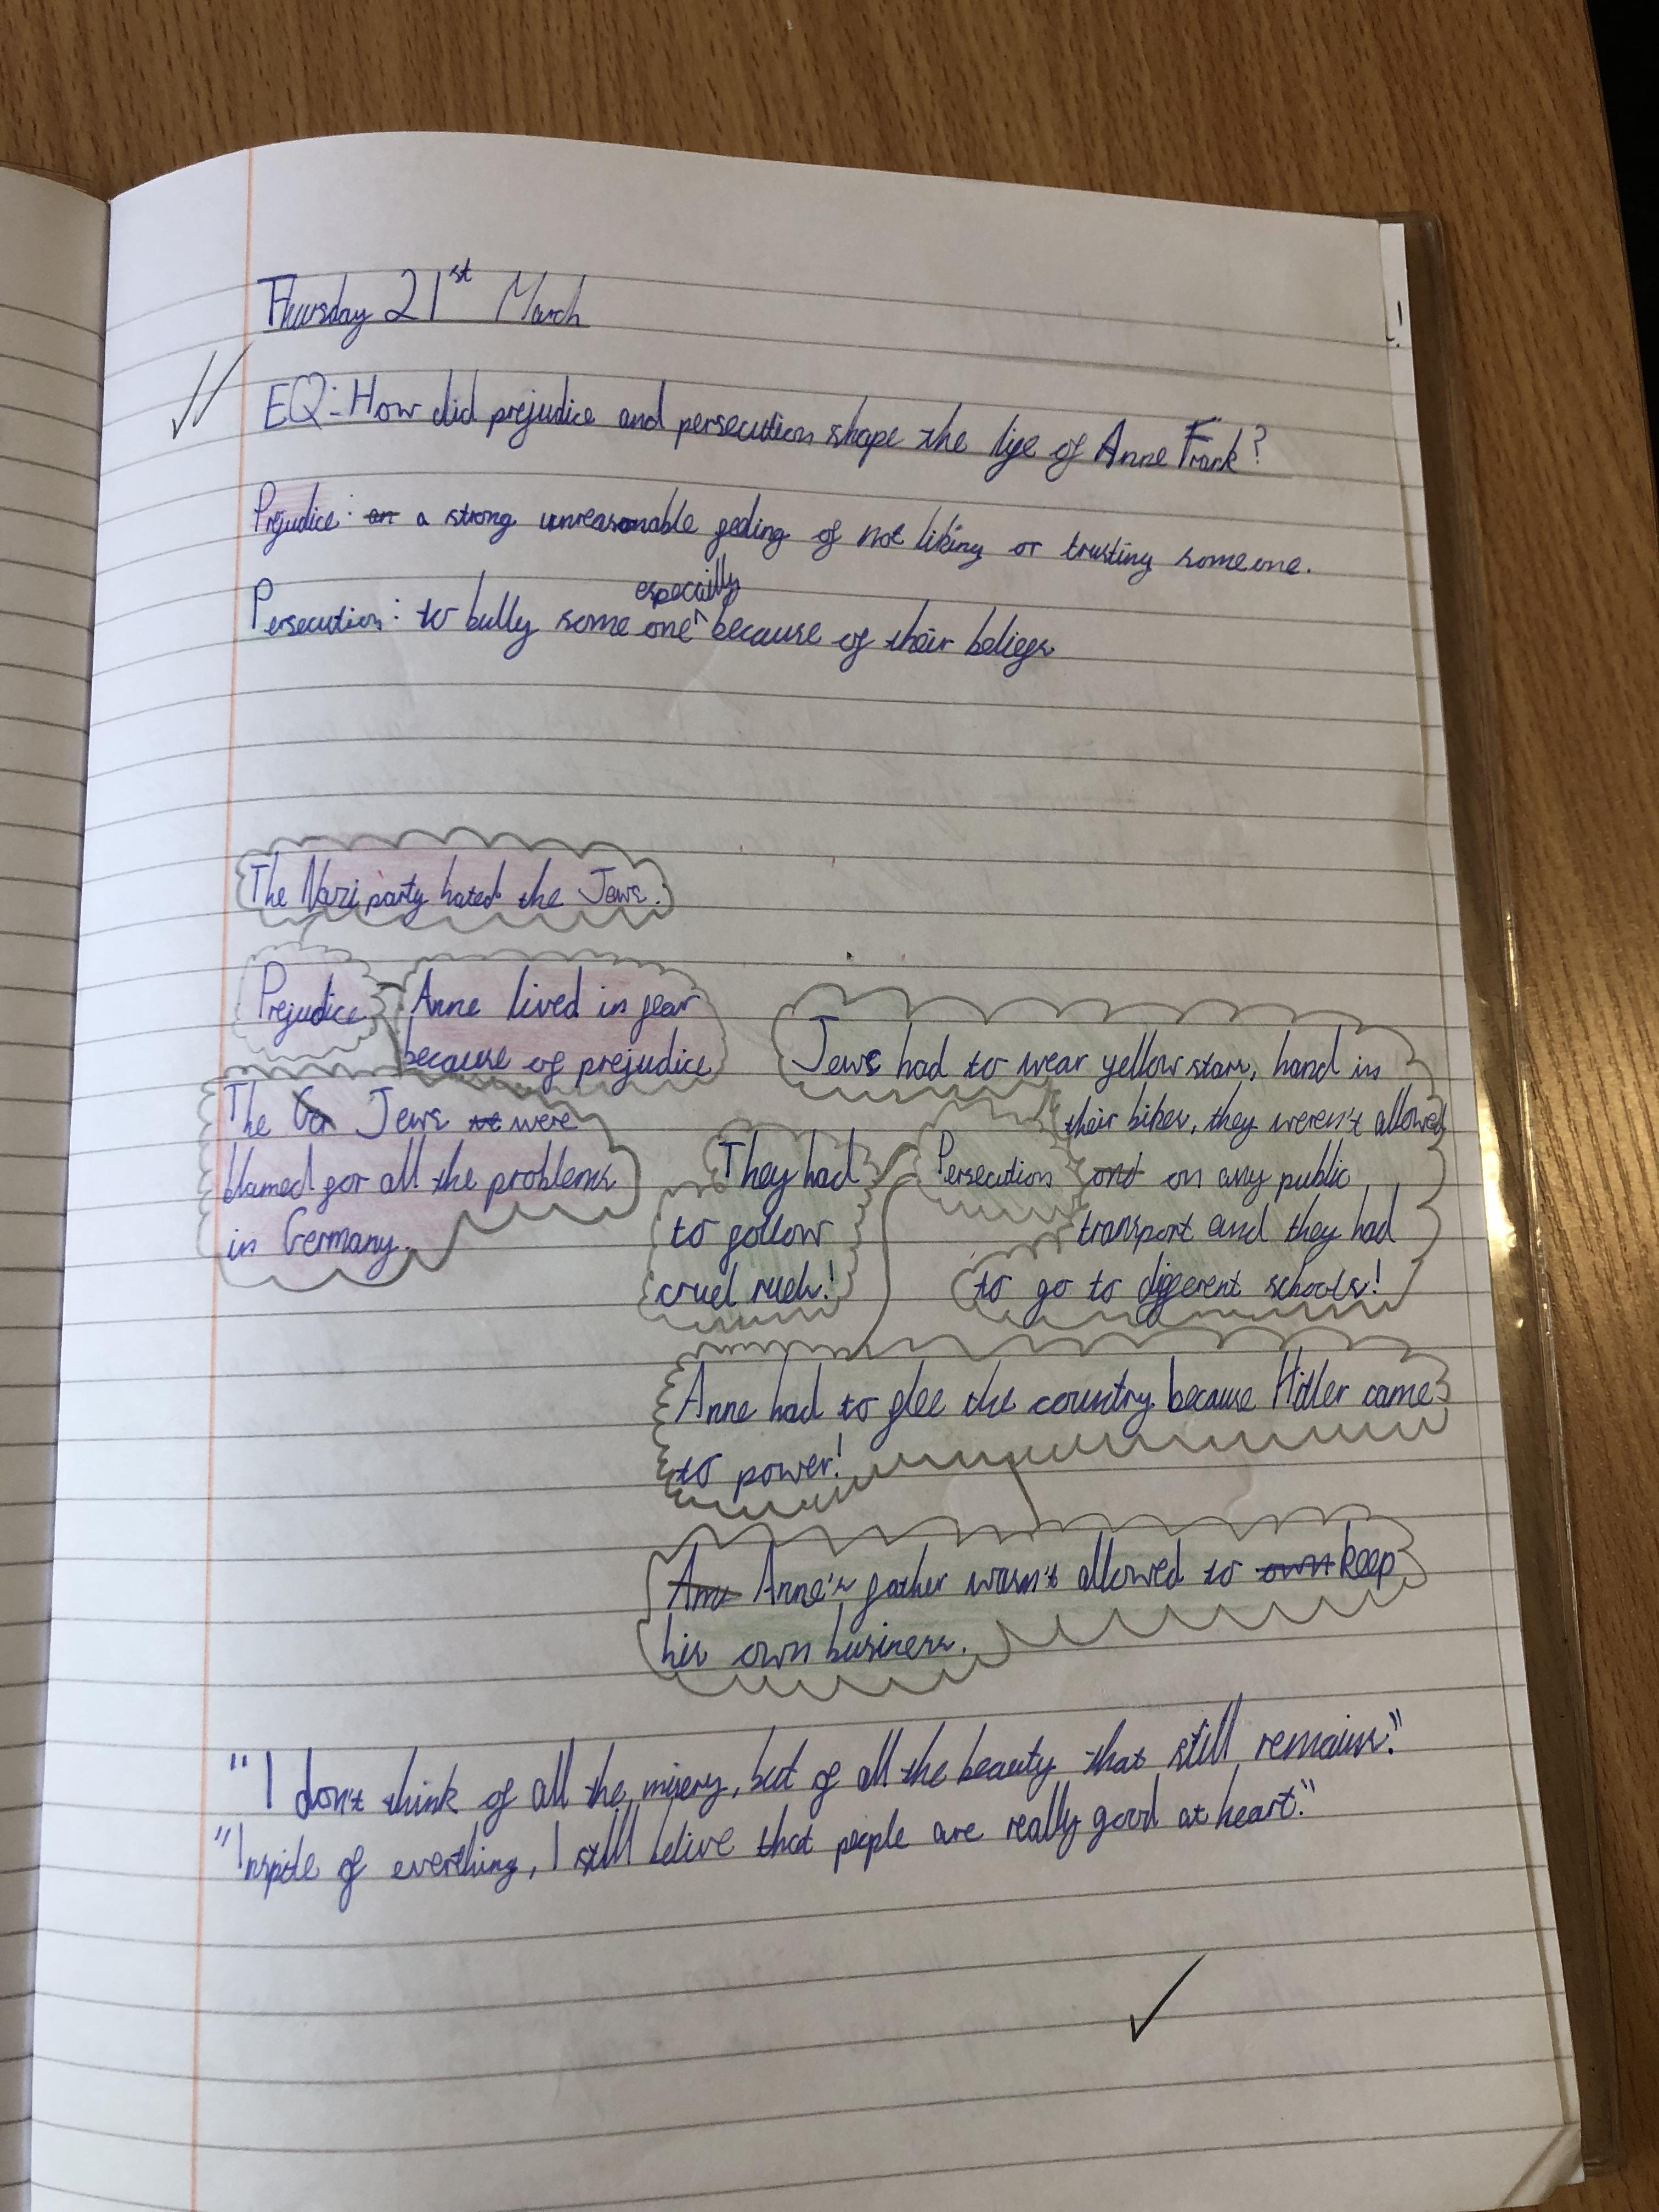 Thursday 21st March
EQ:- How did prejudice and persecution shape the life of Anne Frank?
Prejudice: an a strong unreasonable feeling of not liking or trusting someone.
especially
Persecution: to bully some one ^ because of their beliefs
The Nazi party hated the Jews.
Prejudice
Anne lived in fear
because of prejudice
The Ger Jews we were
blamed for all the problems
in Germany.
They had
to follow
cruel rules!
Persecution
Jews had to wear yellow stars, hand in
their bikes, they weren't allowed
ont on any public
transport and they had
to go to different schools!
Anne had to flee the country because Hitler came
to power!
Ann Anne's father wasn't allowed to own keep
his own business.
"I don't think of all the misery, but of all the beauty that still remains."
"Inspite of everthing, I still belive that people are really good at heart."